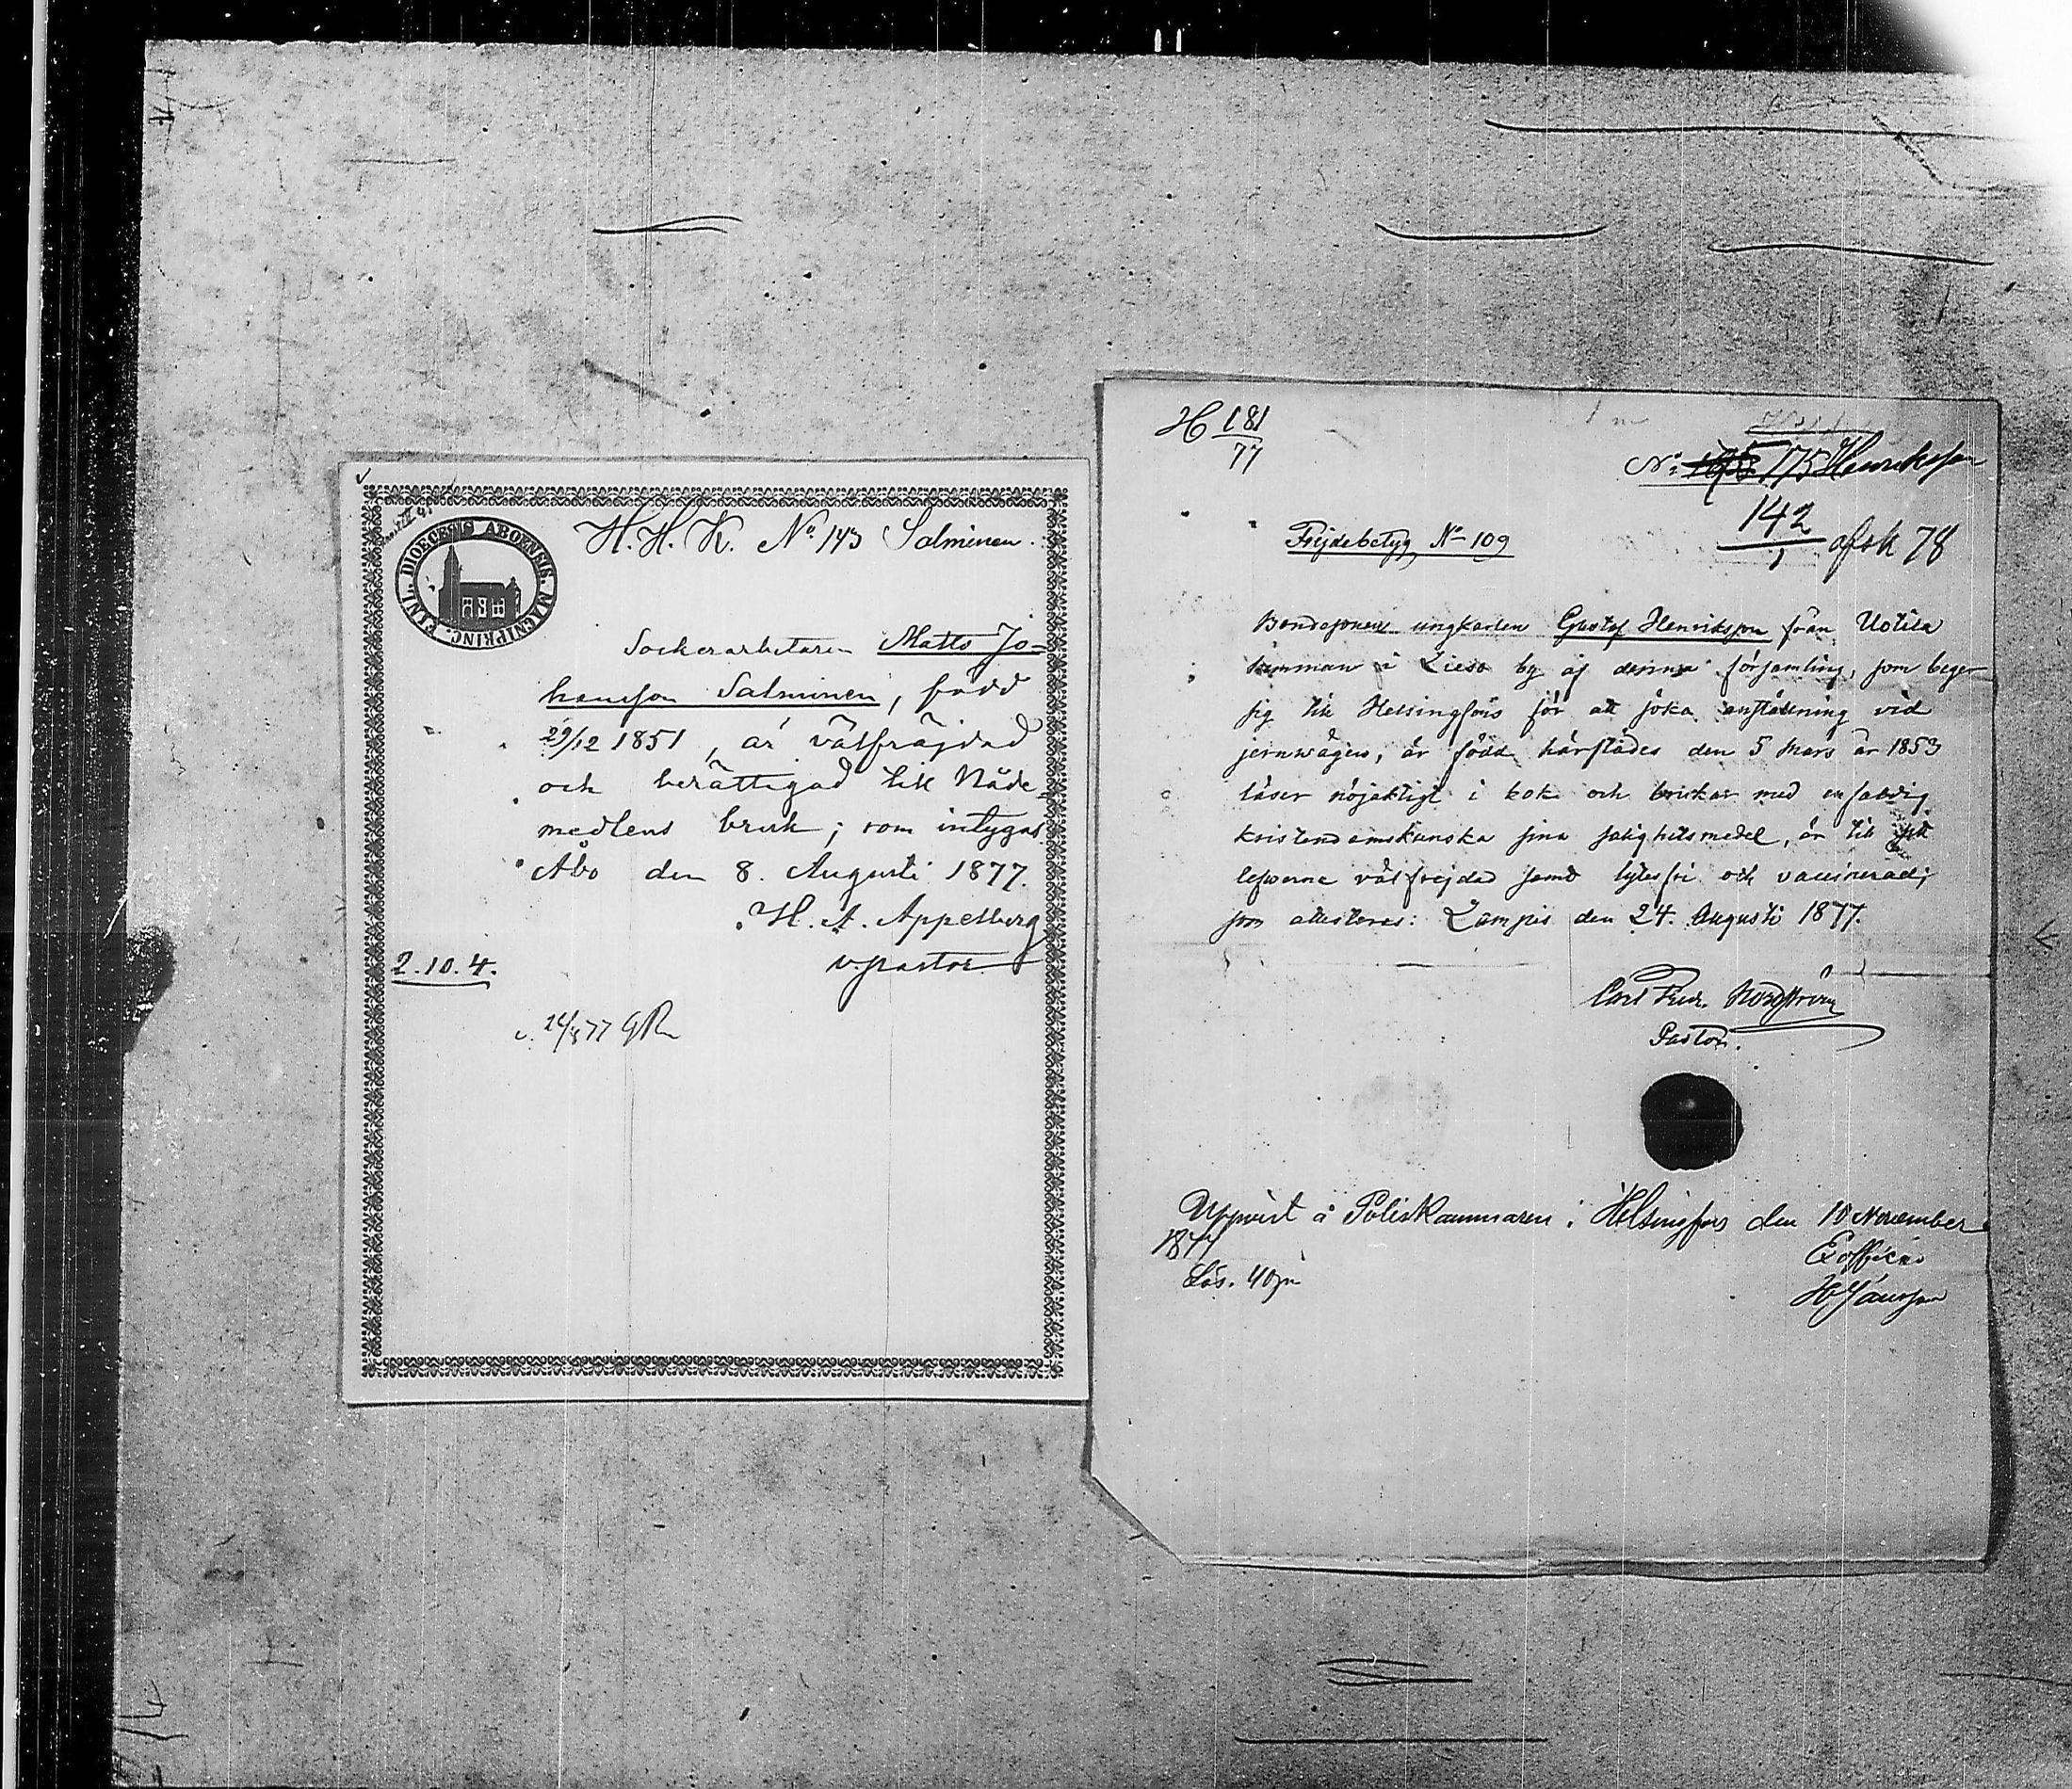 DIOECESIS ABOENSIS. MAGNI PRINC. FINL.
H. H. K. No. 143 Salminen.
Sockerarbetaren Matts Jo-
hansson Salminen, född
29/12 1851, är välfräjdad
och berättigad till Nåde-
medlens bruk; som intygas.
Åbo den 8. Augusti 1877.
H. A. Appelberg
v. pastor
2.10.4.
H 181
77
No 175 Henriksson
142
afsk 78
Frejdebetyg No 109
Bondesonen ungkarlen Gustaf Henriksson från Uotila
hemman i Lieso by af denna församling, som beger
sig till Helsingfors för att söka anställning vid
jernwägen, är född härstädes den 5 Mars år 1853
läser nöjaktigt i bok och brukar med enfaldig
kristendomskunska sina salighetsmedel, är till sitt
lefwerne välfrejdad samt lytesfri och vaccinerad;
som attesteras: Lampis den 24. Augusti 1877.
Carl Fredr. Nordström
Pastor.
Uppvist å Poliskammaren i Helsingfors den 10 November
1877
Ex officio
Lös. 40 pi